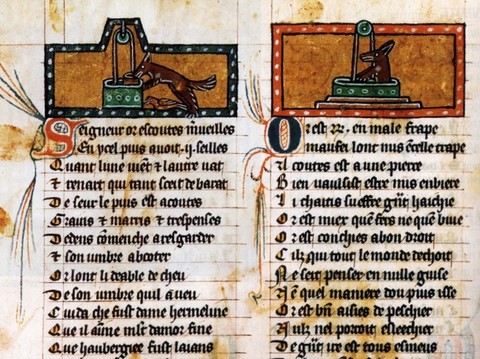 Seigneur or escoutes m̃veilles
En ycel puis avoit .ij. seilles
Quant lune vient & lautre vat
& renart qui tant scent de barat
De seur le puis est acoutes
Grains & marris & trespenses
Dedens cõmenche a resgarder
& son umbre abooter
Or lont li deable de cheu
De son umbre quil a veu
Cuida che fust dame hermeline
Que il aime mlt damor fine
Que haubergiee fust laiens
Or est R. en male trape
maufes lont mis en celle trape
Il coutes est a une pierre
Bien vausist estre mis en biere
Li chaitis sueffre grãt hachie
Or est
Or est conchies a bon droit
Cilz qui tout le monde dechoit
Ne seit penser en nulle guise
A quel maniere dou puis isse
Or est bñ aisies de peschier
Nulz nel porroit esleechier
De